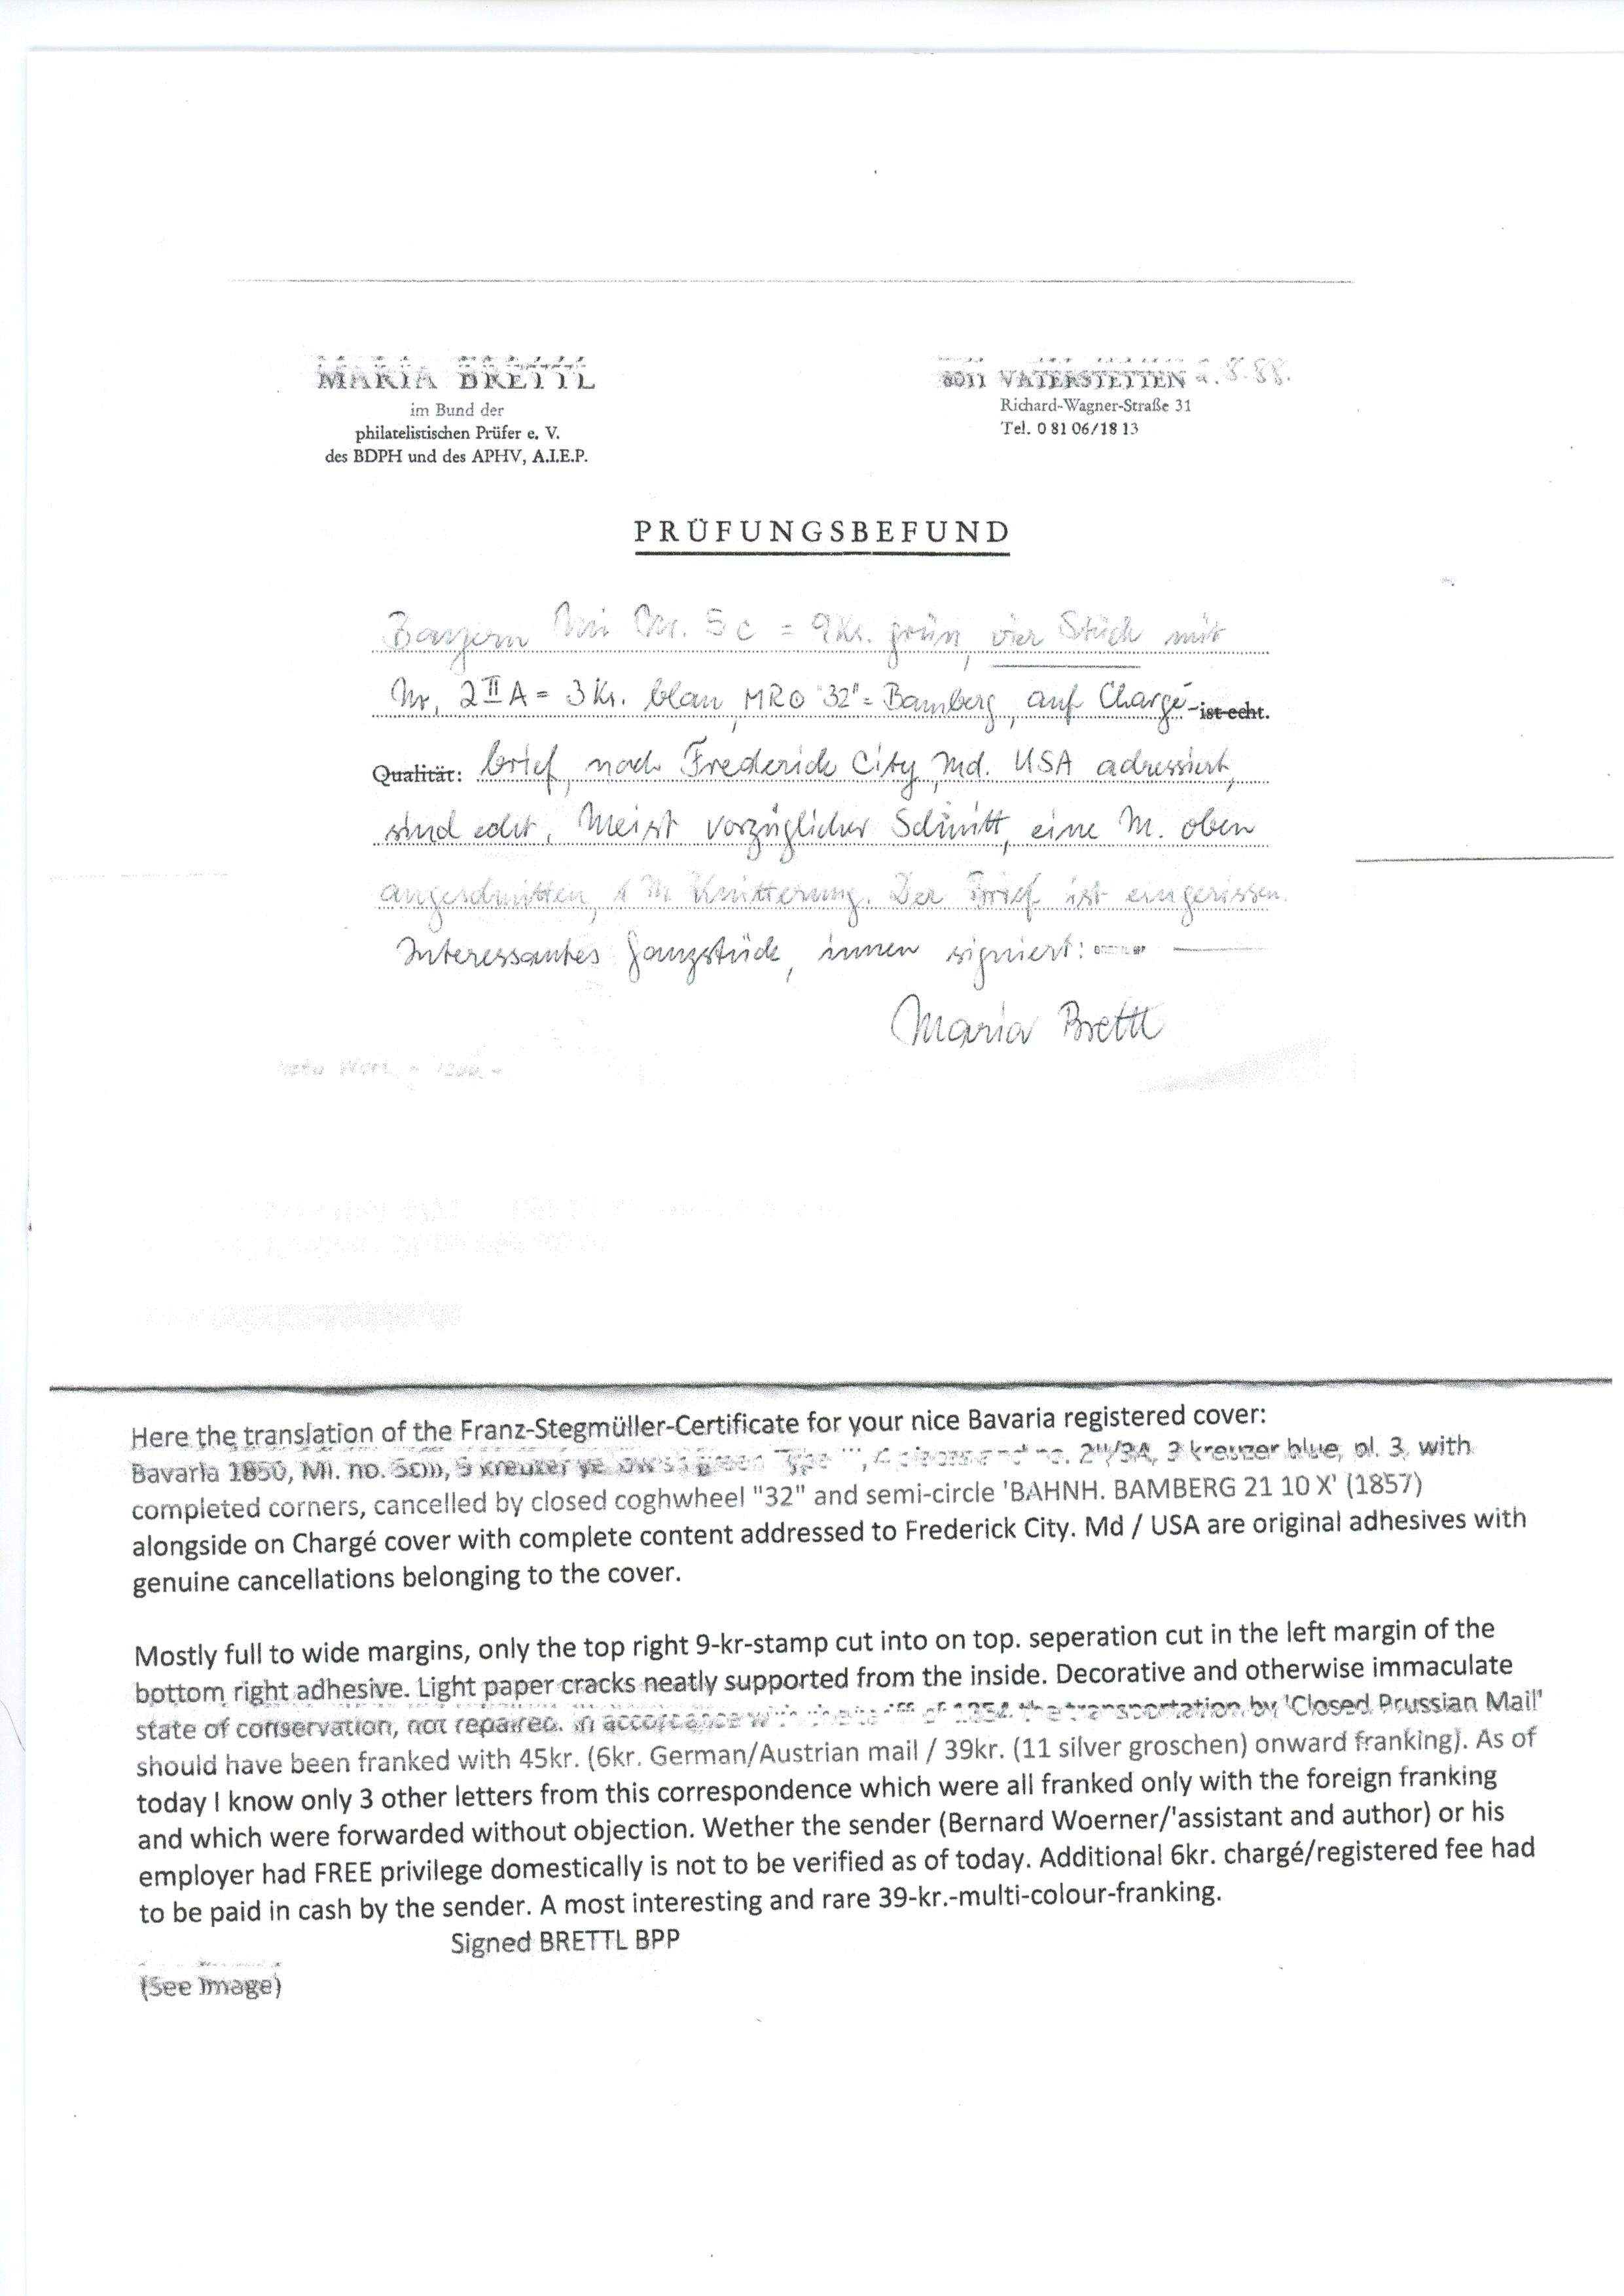 MARIA BRETTL
im Bund der
philatelistischen Prüfer e. V.
des BDPH und des APHV, A.I.E.P.
8011 VATERSTETTEN 2.8.88.
Richard-Wagner-Straße 31
Tel. 0 81 06/18 13
PRÜFUNGSBEFUND
Bayern Mi Nr. 5 c = 9 Kr. grün, vier Stück mit
Nr. 2 II A = 3 Kr. blau, MRO "32" = Bamberg, auf Chargé- ist echt.
Qualität: brief, nach Frederick City, Md. USA adressiert,
sind echt. Meist vorzüglicher Schnitt, eine M. oben
angeschnitten, 1 M. Knitterung. Der Brief ist eingerissen.
Interessantes Ganzstück, innen signiert: BRETTL BPP
Maria Brettl
Here the translation of the Franz-Stegmüller-Certificate for your nice Bavaria registered cover:
Bavaria 1850, Mi. no. kreuzer green Type 3 kreuzer blue, pl. 3, with
completed corners, cancelled by closed coghwheel "32" and semi-circle 'BAHNH. BAMBERG 21 10 X' (1857)
alongside on Chargé cover with complete content addressed to Frederick City. Md / USA are original adhesives with
genuine cancellations belonging to the cover.
Mostly full to wide margins, only the top right 9-kr-stamp cut into on top. seperation cut in the left margin of the
bottom right adhesive. Light paper cracks neatly supported from the inside. Decorative and otherwise immaculate
state of conservation, not repaired. In accordance with the tariff of 1854 the transportation by 'Closed Prussian Mail'
should have been franked with 45kr. (6kr. German/Austrian mail / 39kr. (11 silver groschen) onward franking). As of
today I know only 3 other letters from this correspondence which were all franked only with the foreign franking
and which were forwarded without objection. Wether the sender (Bernard Woerner/'assistant and author) or his
employer had FREE privilege domestically is not to be verified as of today. Additional 6kr. chargé/registered fee had
to be paid in cash by the sender. A most interesting and rare 39-kr.-multi-colour-franking.
Signed BRETTL BPP
(See Image)